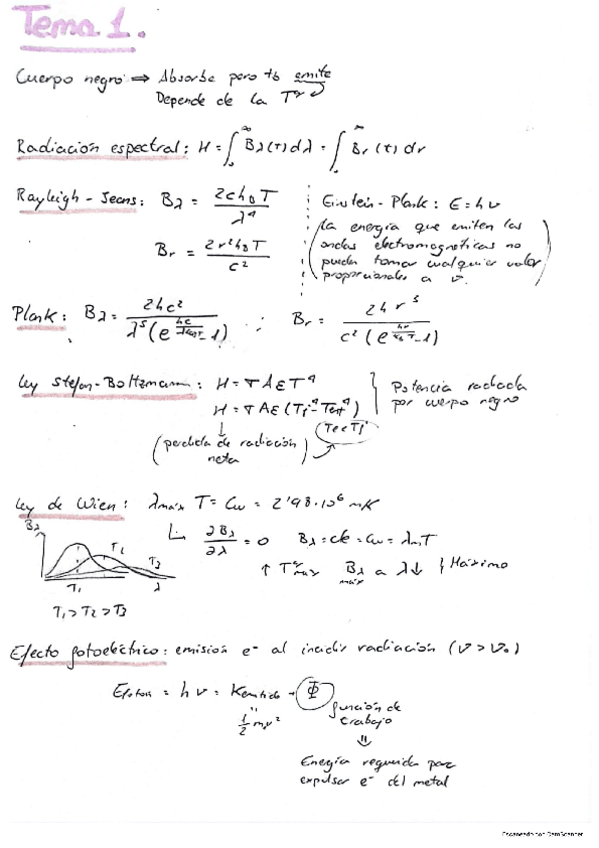 Tema 1.
Cuerpo negro ⇒ Absorbe pero tb emite
Depende de la Tª
Radiación espectral: H = ∫₀^∞ Bλ(T)dλ = ∫₀^∞ Bν(T)dν
Rayleigh - Jeans: Bλ = 2ckBT / λ⁴
Bν = 2ν²kBT / c²
Einstein - Plank: E = hν
(La energía que emiten las
ondas electromagnéticas no
pueda tomar cualquier valor
proporcionales a ν.)
Plank: Bλ = 2hc² / λ⁵(e^(hc/λkBT) - 1) ; Bν = 2hν³ / c²(e^(hν/kBT) - 1)
Ley Stefan-Boltzmann: H = σAεT⁴
H = σAε(Ti⁴ - Text⁴)
Potencia radiada
por cuerpo negro
(perdida de radiación
neta)
Te<Ti
Ley de Wien: λmáx T = Cw = 2'98·10⁶ mK
∂Bλ/∂λ = 0 Bλ = cte = Cw = λmT
↑ Tª Bλ máx a λ↓ } Máximo
Bλ
T1
T2
T3
λ
T1 > T2 > T3
Efecto fotoeléctrico: emisión e⁻ al incidir radiación (ν > ν₀)
Efoton = hν = Kemitido + Φ
½mv²
función de
trabajo
⇓
Energía requerida para
expulsar e⁻ del metal
Escaneado con CamScanner